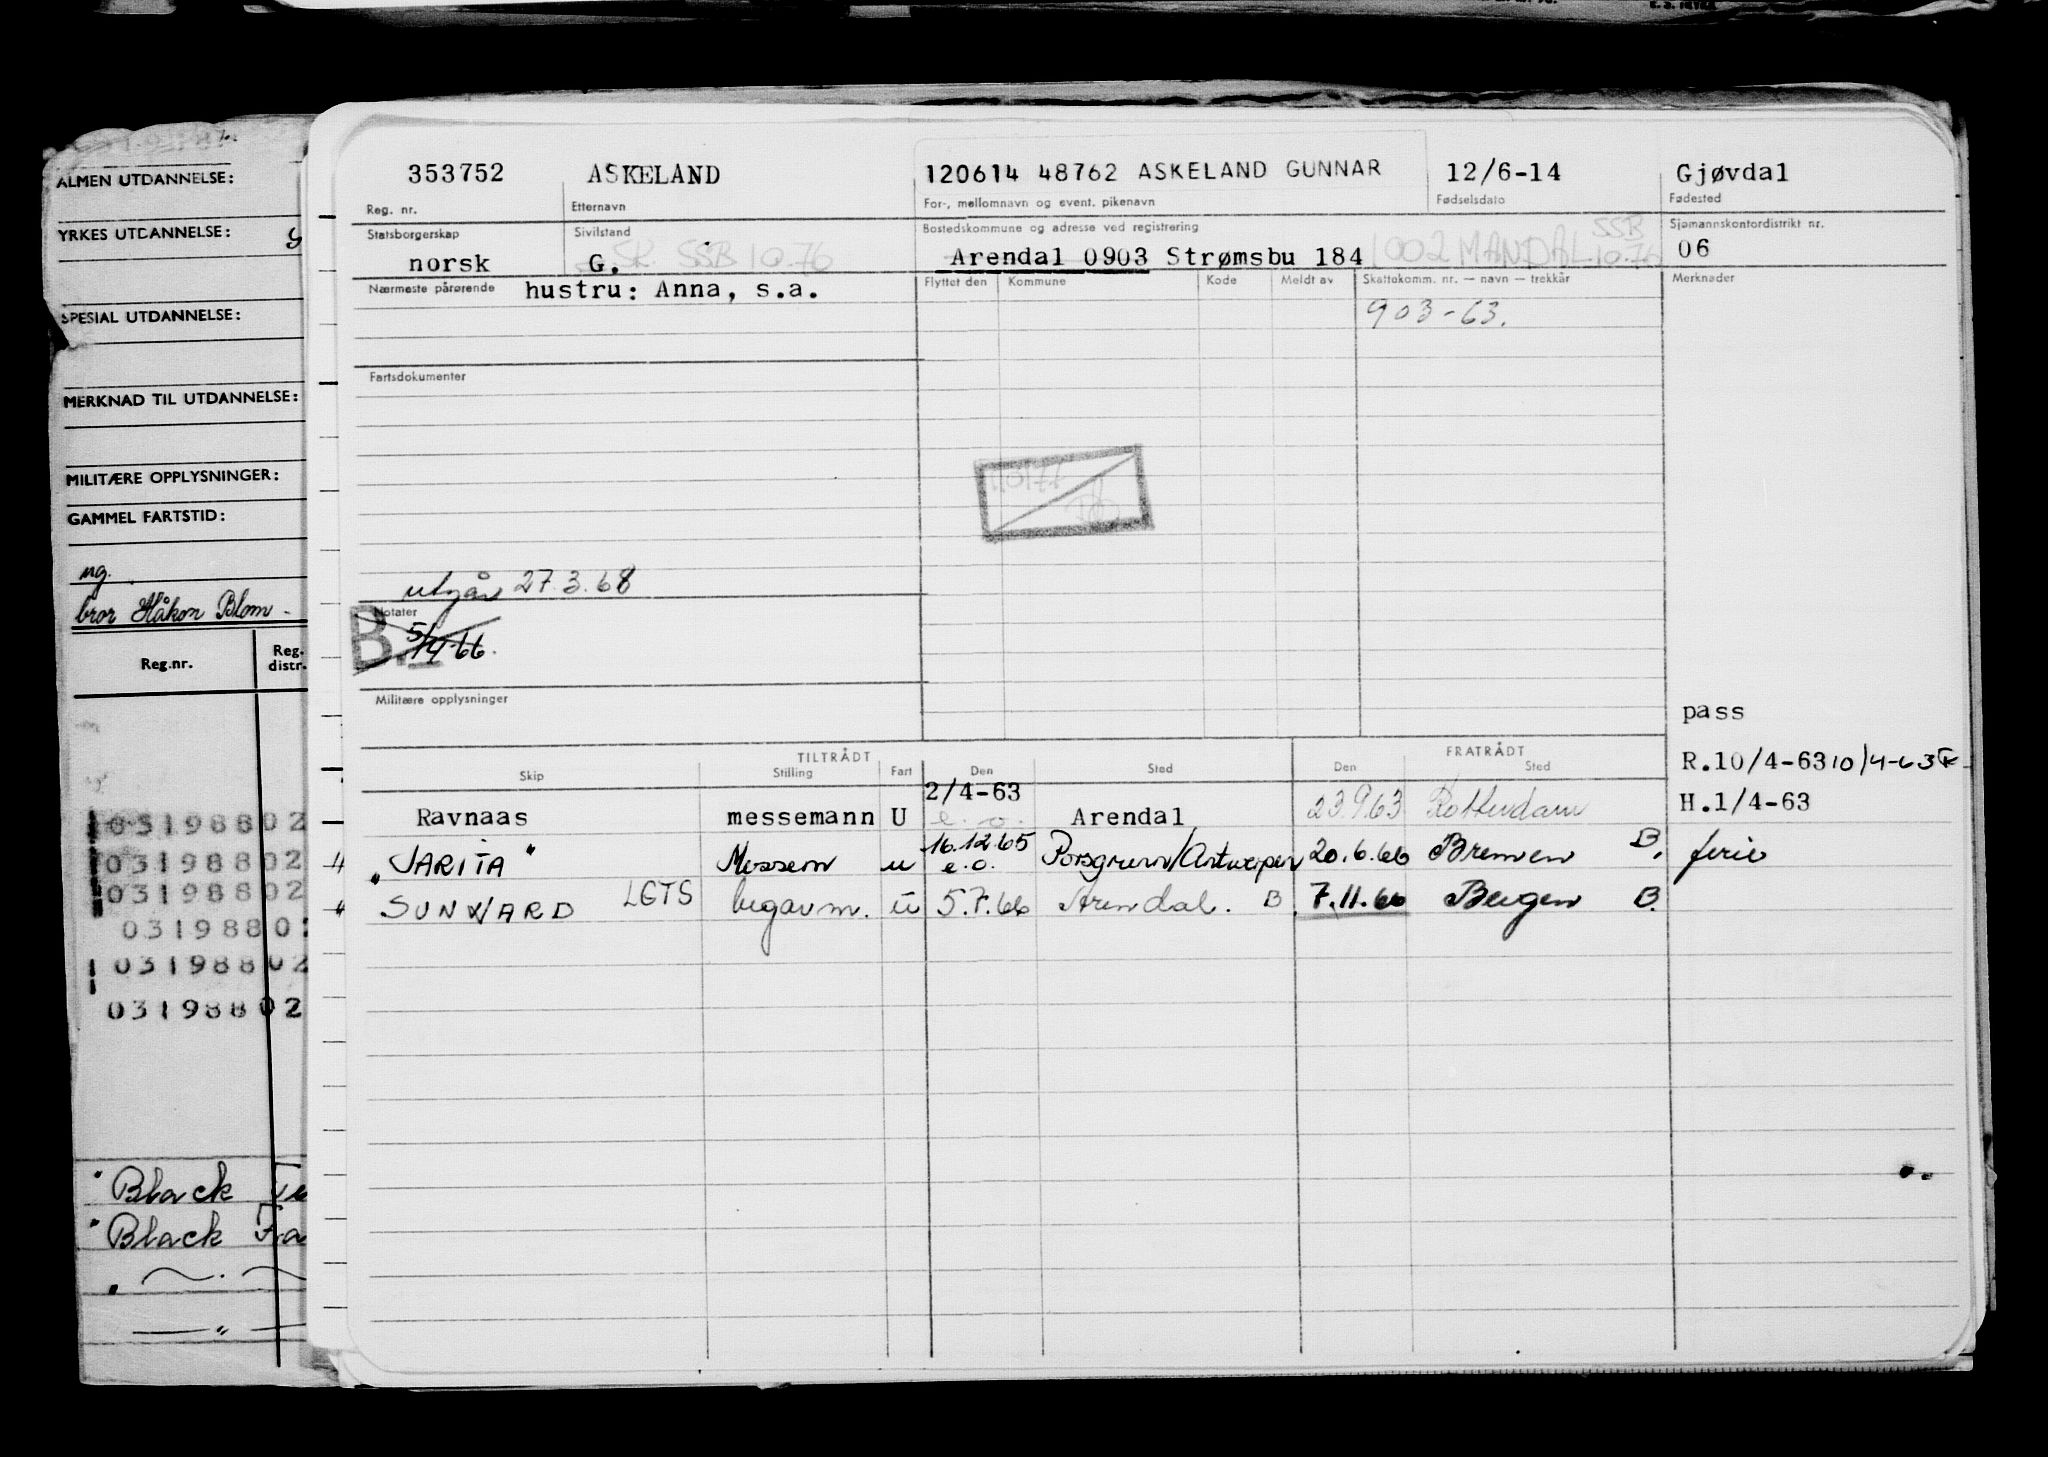 353752 ASKELAND 120614 48762 ASKELAND GUNNAR 12/6-14 Gjøvdal
Reg. nr. Etternavn For-, mellomnavn og event. pikenavn Fødselsdato Fødested
Statsborgerskap Sivilstand Bostedskommune og adresse ved registrering Sjømannskontordistrikt nr.
norsk G. SK SSB 10.76 Arendal 0903 Strømsbu 184 1002 MANDAL SSB 10.76 06
Nærmeste pårørende hustru: Anna, s.a. Flyttet den Kommune Kode Meldt av Skattekomm. nr. — navn — trekkår Merknader
903-63.
Fartsdokumenter
utgår 27.3.68
Notater
B. 5/4-66.
Militære opplysninger
pass
TILTRÅDT FRATRÅDT
Skip Stilling Fart Den Sted Den Sted
R.10/4-63 10/4-63
2/4-63
H.1/4-63
Ravnaas messemann U e.o. Arendal 23.9.63 Rotterdam
"JARITA" Messem u 16.12.65 e.o. Porsgrunn/Antwerpen 20.6.66 Bremen B. ferie
SUNWARD LGTS bugavm. u 5.7.66 Arendal. B. 7.11.66 Bergen B.
ALMEN UTDANNELSE:
YRKES UTDANNELSE:
SPESIAL UTDANNELSE:
MERKNAD TIL UTDANNELSE:
MILITÆRE OPPLYSNINGER:
GAMMEL FARTSTID:
ug.
bror Håkon Blom -
Reg.nr. Reg. distr.
03198802
03198802
03198802
0319880
03198802
03198802
"Black
"Black